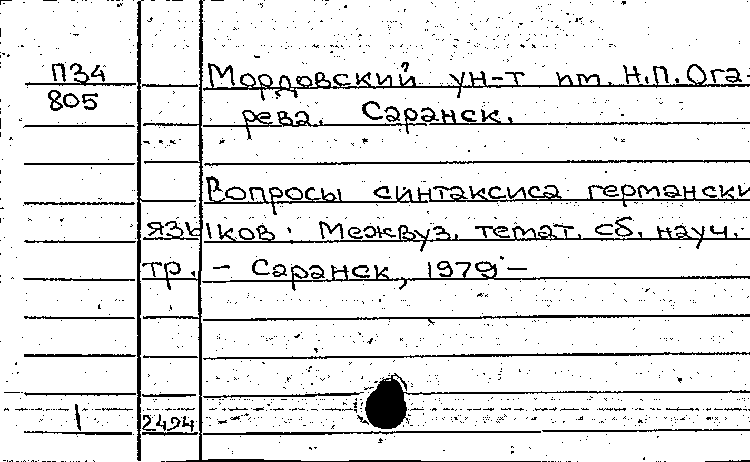 П34
805
Мордовский ун-т им. Н.П. Ога-
рева. Саранск.
Вопросы синтаксиса германски
языков: Межвуз. темат. сб. науч.
тр. – Саранск, 1979 –
1 2494